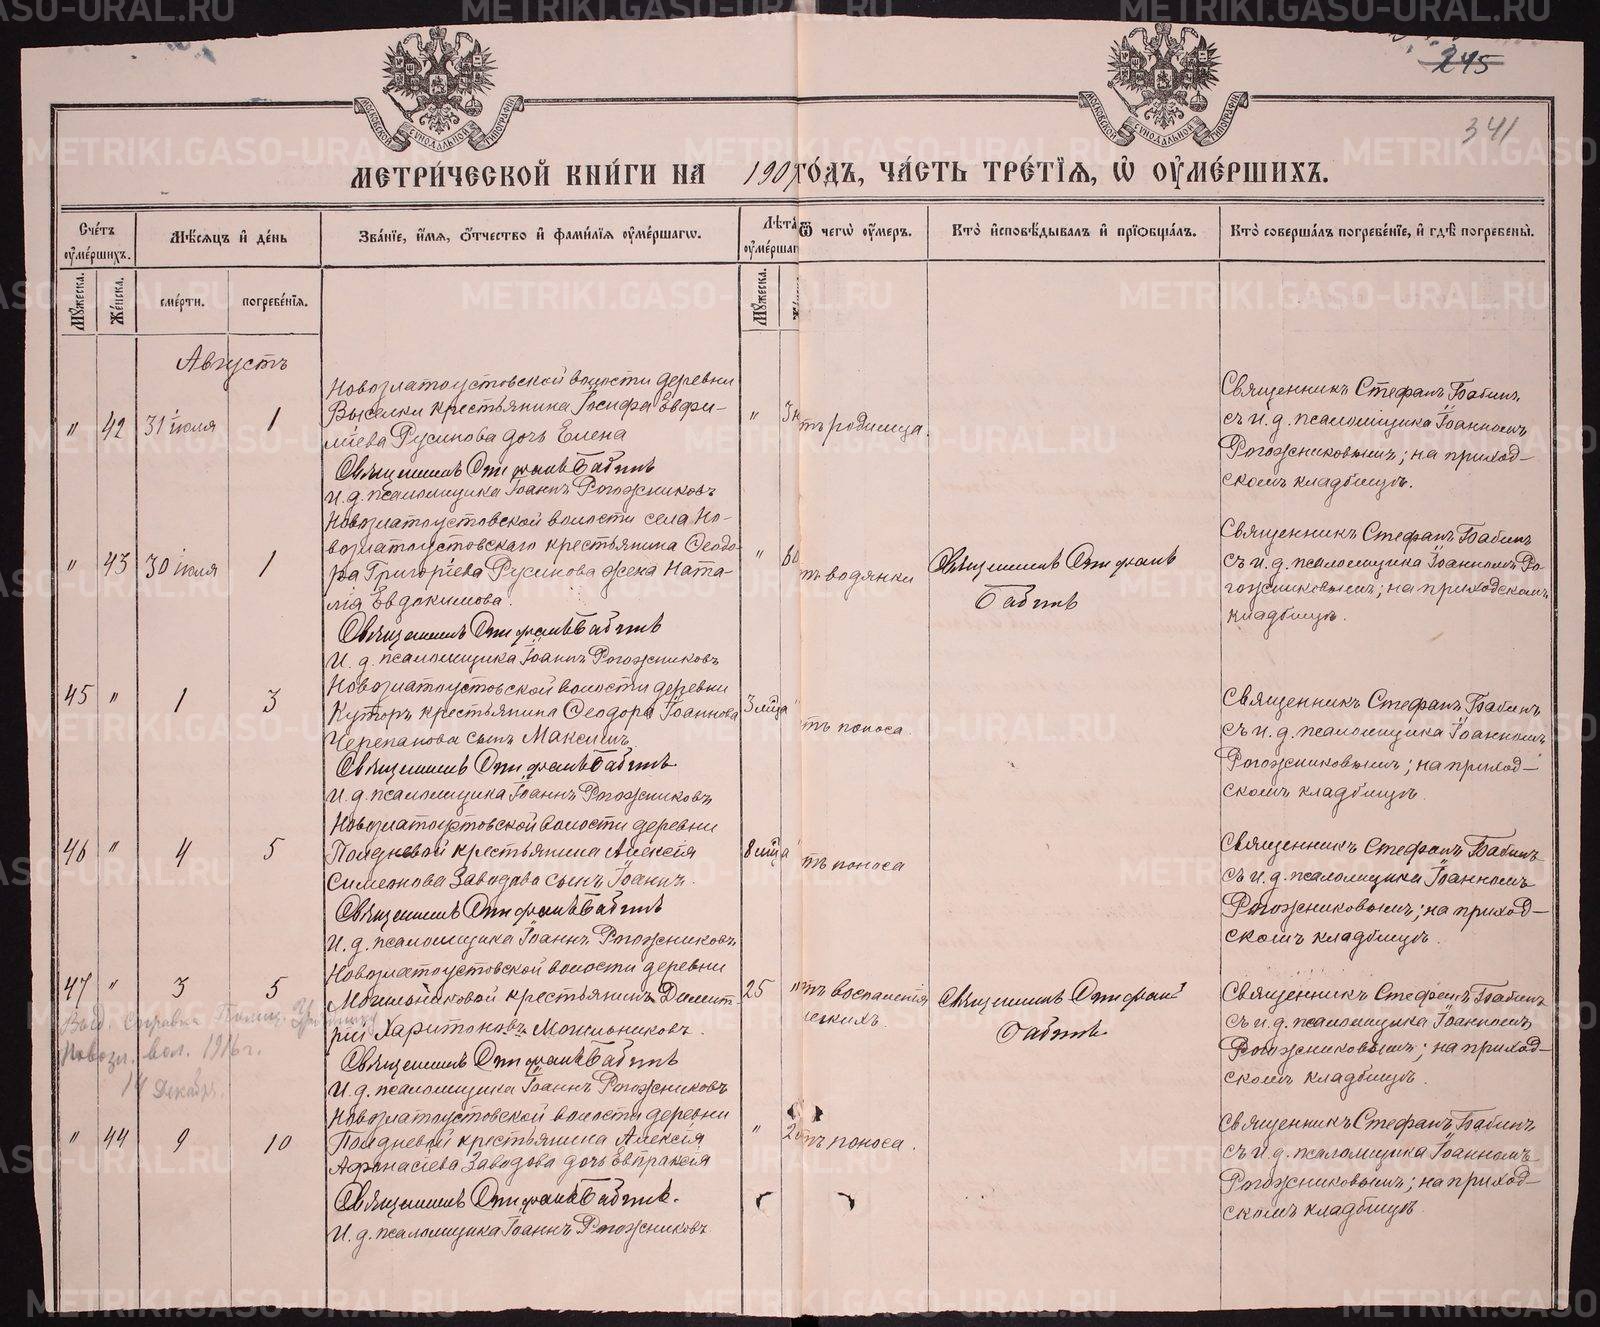 METRIKI.GASO-URAL.RU
245
341
МОСКОВСКОЙ СѴНОДАЛЬНОЙ ТИПОГРАФІИ
МОСКОВСКОЙ СѴНОДАЛЬНОЙ ТИПОГРАФІИ
МЕТРИ́ЧЕСКОЙ КНИ́ГИ НА 1907 ГО́ДЪ, ЧА́СТЬ ТРЕ́ТІѦ, Ѡ ОУМЕ́РШИХЪ.
Сче́тъ оуме́ршихъ.
Мѣ́сѧцъ и де́нь
Зва́нїе, и́мѧ, о́тчество и фами́лїѧ оуме́ршагѡ.
Лѣ́та оуме́ршаг
Ѿ чегѡ̀ оу́меръ.
Кто̀ исповѣ́дывалъ и прїѡбща́лъ.
Кто̀ соверша́лъ погребе́нїе, и гдѣ̀ погребены̀.
Мꙋ́жеска.
Же́нска.
сме́рти.
погребе́нїѧ.
Мꙋ́жеска.
Августъ
" 42 31 іюля 1
Новозлатоустовской волости деревни
Выселки крестьянина Іосифа Евфи-
міева Русинова дочь Елена
Священникъ Стефанъ Бабинъ
И. д. псаломщика Іоаннъ Рогожниковъ
"
тъ родимца.
Священникъ Стефанъ Бабинъ
съ и. д. псаломщика Іоанномъ
Рогожниковымъ; на приход-
скомъ кладбищѣ.
" 43 30 іюля 1
Новозлатоустовской волости села Но-
возлатоустовскаго крестьянина Ѳеодо-
ра Григоріева Русинова жена Ната-
лія Евдокимова.
Священникъ Стефанъ Бабинъ
И. д. псаломщика Іоаннъ Рогожниковъ
" 60
тъ водянки
Священникъ Стефанъ
Бабинъ
Священникъ Стефанъ Бабинъ
съ и. д. псаломщика Іоанномъ Ро-
гожниковымъ; на приходскомъ
кладбищѣ.
45 " 1 3
Новозлатоустовской волости деревни
Куторъ крестьянина Ѳеодора Іоаннова
Черепанова сынъ Максимъ
Священникъ Стефанъ Бабинъ
И. д. псаломщика Іоаннъ Рогожниковъ
3 мца
тъ поноса.
Священникъ Стефанъ Бабинъ
съ и. д. псаломщика Іоанномъ
Рогожниковымъ; на приход-
скомъ кладбищѣ.
46 " 4 5
Новозлатоустовской волости деревни
Полдневой крестьянина Алексія
Симеонова Заводова сынъ Іоаннъ.
Священникъ Стефанъ Бабинъ
И. д. псаломщика Іоаннъ Рогожниковъ
8 мца
тъ поноса
Священникъ Стефанъ Бабинъ
съ и. д. псаломщика Іоанномъ
Рогожниковымъ; на приход-
скомъ кладбищѣ.
47 " 3 5
Выд. справка
Новозл. вол. 1916 г.
14 Декабря.
Новозлатоустовской волости деревни
Могильниковой крестьянинъ Димит-
рій Харитоновъ Могильниковъ.
Священникъ Стефанъ Бабинъ
И. д. псаломщика Іоаннъ Рогожниковъ
25 "
тъ воспаленія
легкихъ.
Священникъ Стефанъ
Бабинъ
Священникъ Стефанъ Бабинъ
съ и. д. псаломщика Іоанномъ
Рогожниковымъ; на приход-
скомъ кладбищѣ.
" 44 9 10
Новозлатоустовской волости деревни
Полдневой крестьянина Алексія
Афанасіева Заводова дочь Евпраксія
Священникъ Стефанъ Бабинъ.
И. д. псаломщика Іоаннъ Рогожниковъ
" 2
тъ поноса.
Священникъ Стефанъ Бабинъ
съ и. д. псаломщика Іоанномъ
Рогожниковымъ; на приход-
скомъ кладбищѣ.